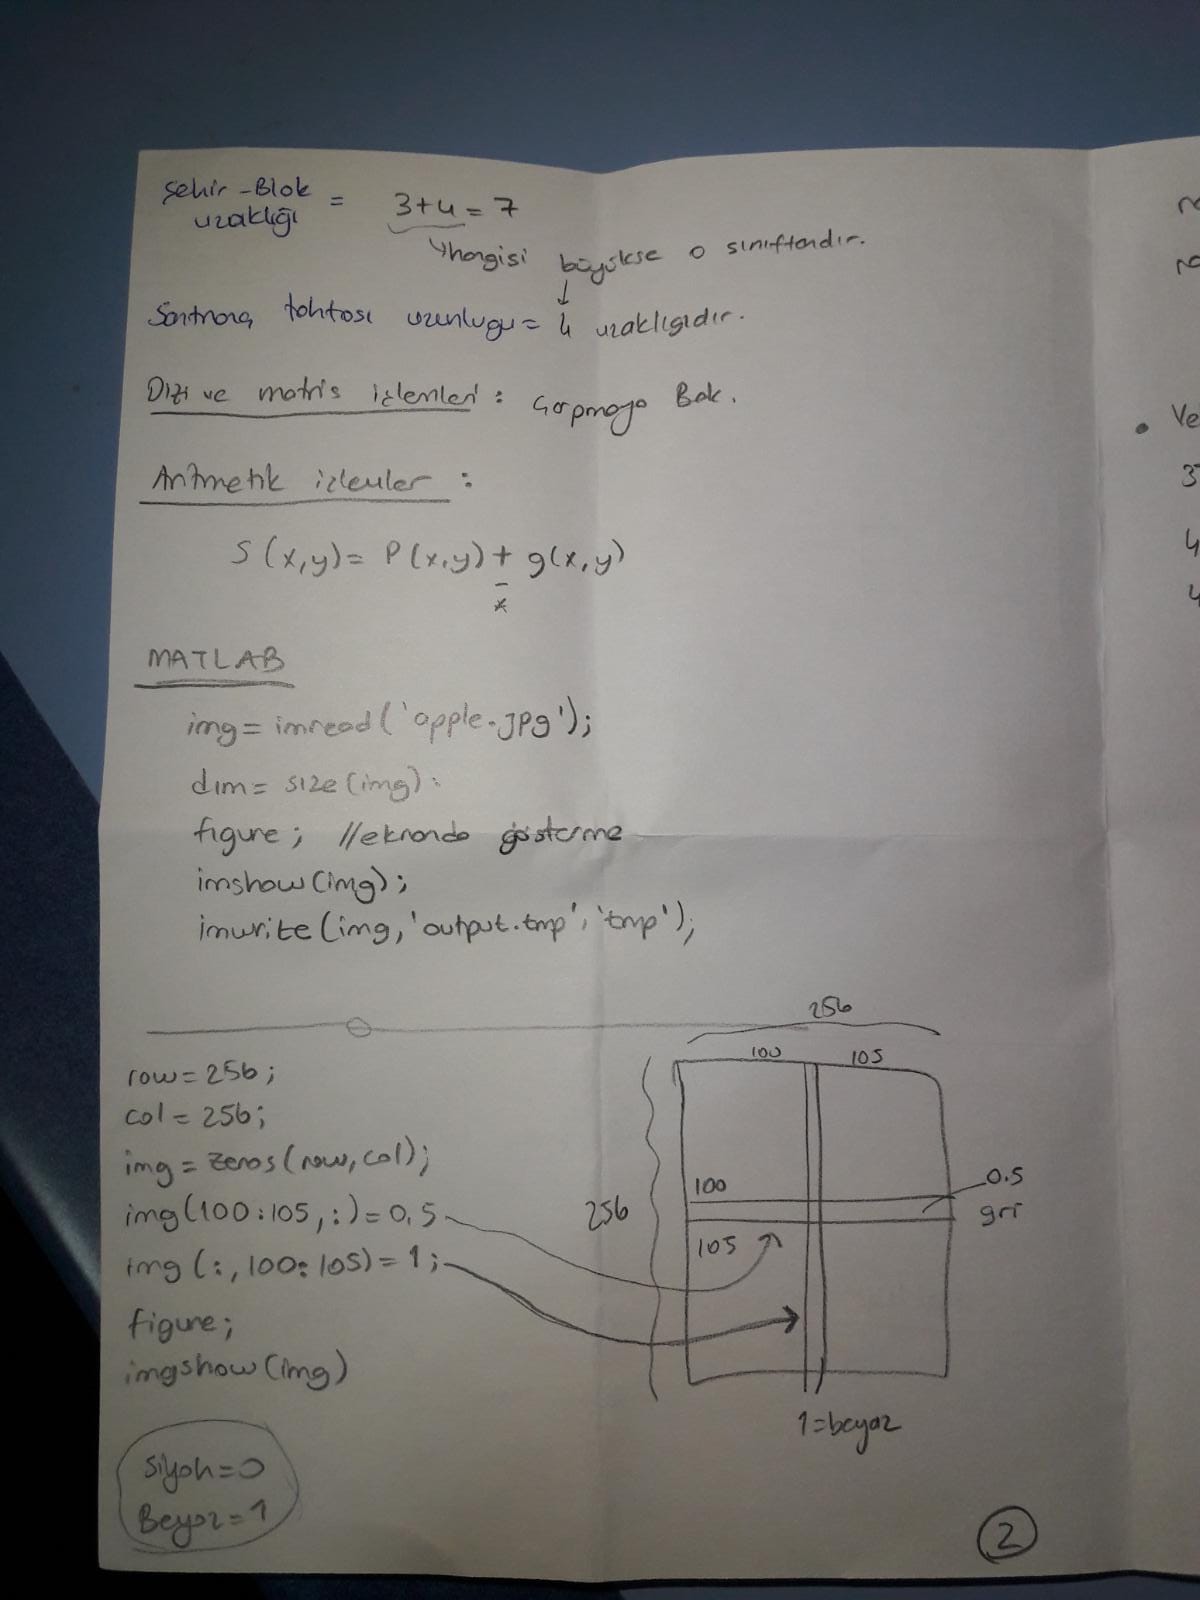 Şehir-Blok uzaklığı = 3+4=7
↳hangisi büyükse o sınıftandır.
↓
Santranç tahtası uzunlugu= 4 uzaklıgıdır.
Dizi ve matris işlemleri: Çarpmaya Bak.
Aritmetik işlemler:
S(x,y)= P(x,y) + g(x,y)
-
*
MATLAB
img= imread('apple.jpg');
dım= size(img);
figure; //ekranda gösterme
imshow(img);
imwrite(img,'output.tmp','tmp');
256
100 105
row=256;
col=256;
img=zeros(row,col);
img(100:105,:)=0,5
img(:,100:105)=1;
figure;
imgshow(img)
256
100
105
0.5
gri
1=beyaz
Siyah=0
Beyaz=1
2
Ve
3
4
4